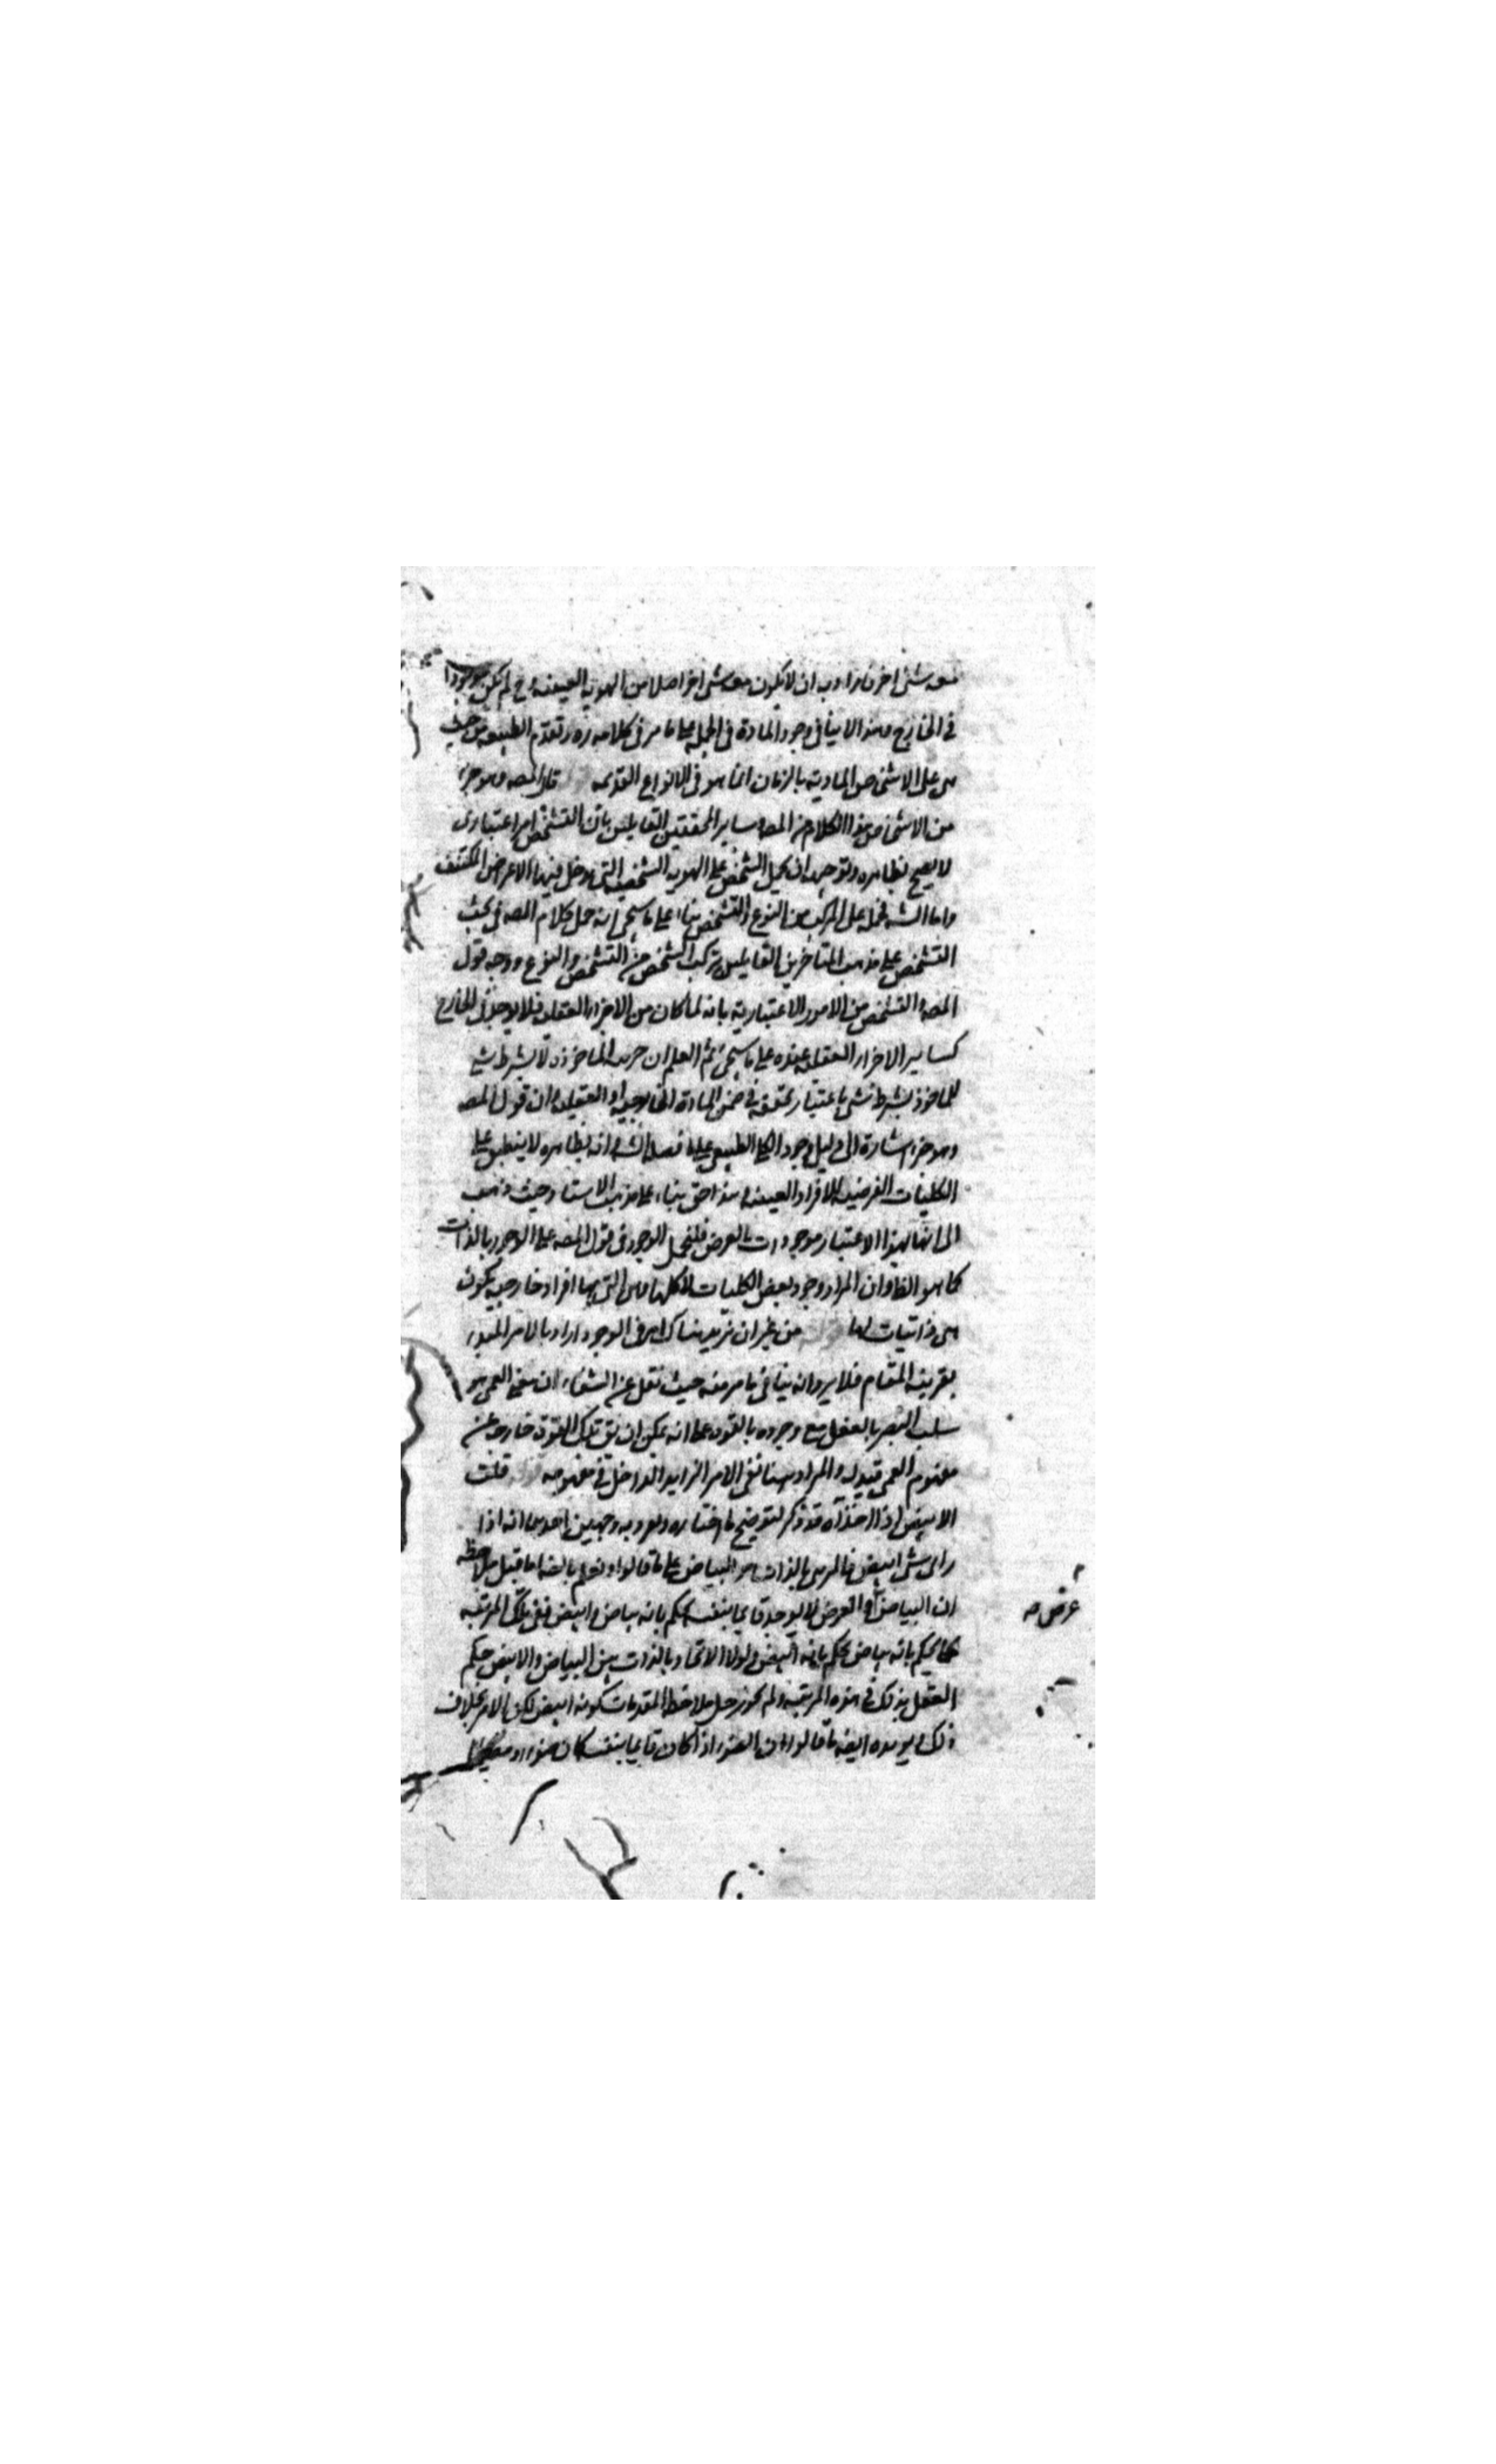 معه شئ اخر فاراد به ان لا يكون معه شئ اخر اصلا من الهوية العينية وح لم يكن موجودا
في الخارج وهذا لا ينافي وجود المادة في الجملة على ما مر في كلامه ره وتقدم الطبيعة من حيث
هي على الاشخاص المادية بالزمان انما هو في الانواع القديمه قال المصه وهو جزء
من الاشخاص هذا الكلام من المصه وساير المحققين القايلين بان التشخص امر اعتباري
لا يصح بظاهره وتوجيهه ان يحمل الشخص على الهوية الشخصية التي يدخل فيها الاعراض المكتنفة
واما الشه فحمله على المركب من النوع والتشخص بناء على ما سيجئ انه حمل كلام المصه في بحث
التشخص على مذهب المتاخرين القايلين بتركب الشخص من التشخص والنوع ووجه قول
المصه والتشخص من الامور الاعتبارية بانه لما كان من الاجزاء العقلية فلا يوجد في الخارج
كساير الاجزاء العقلية عنده على ما سيجئ ثم اعلم ان جزئية الماخوذ لا بشرط شئ
للماخوذ بشرط شئ باعتبار تحققه في ضمن المادة الخارجية او العقلية وان قول المصه
وهو جزء اشارة الى دليل وجود الكلي الطبيعي على ما فصله الشه وانه بظاهره لا ينطبق على
الكليات العرضية للافراد العينية وهذا حق بناء على مذهب الاستاد حيث ذهب
الى انها بهذا الاعتبار موجودات بالعرض فليحمل الوجود في قول المصه على الوجود بالذات
كما هو الظ او ان المراد وجود بعض الكليات لا كلها وهي التي لها افراد خارجية يكون
هي ذاتيات لها من غير ان يزيد هناك امر في الوجود اراد بالامر المبدء
بقرينة المقام فلا يرد انه ينافي ما مر منه حيث نقل عن الشفاء ان معنى العمى هو
سلب البصر بالفعل مع وجوده بالقوة على انه يمكن ان يق تلك القوة خارجة عن
مفهوم العمى قيد له والمراد هنا نفى الامر الزايد الداخل في مفهومه قلت
الابيض اذا اخذ آه قد ذكر لتوضيح ما اختاره وجهين احدهما انه اذا
راى شئ ابيض فالمرئي بالذات هو البياض على ما قالوا ونعلم بالضه اما قبل ملاحظة
ان البياض عرض والعرض لا يوجد قايما بنفسه يحكم بانه بياض وابيض ففي تلك المرتبة
كما يحكم بانه بياض يحكم بانه ابيض ولولا الاتحاد بالذات بين البياض والابيض حكم
العقل بذلك في هذه المرتبة ولم يجوز قبل ملاحظة المقدمات كونه ابيض لكن الامر بخلاف
ذلك ويؤيده ايضه ما قالوا ان الضوء اذا كان قايما بنفسه كان ضوء او مضيئا
عرض صه